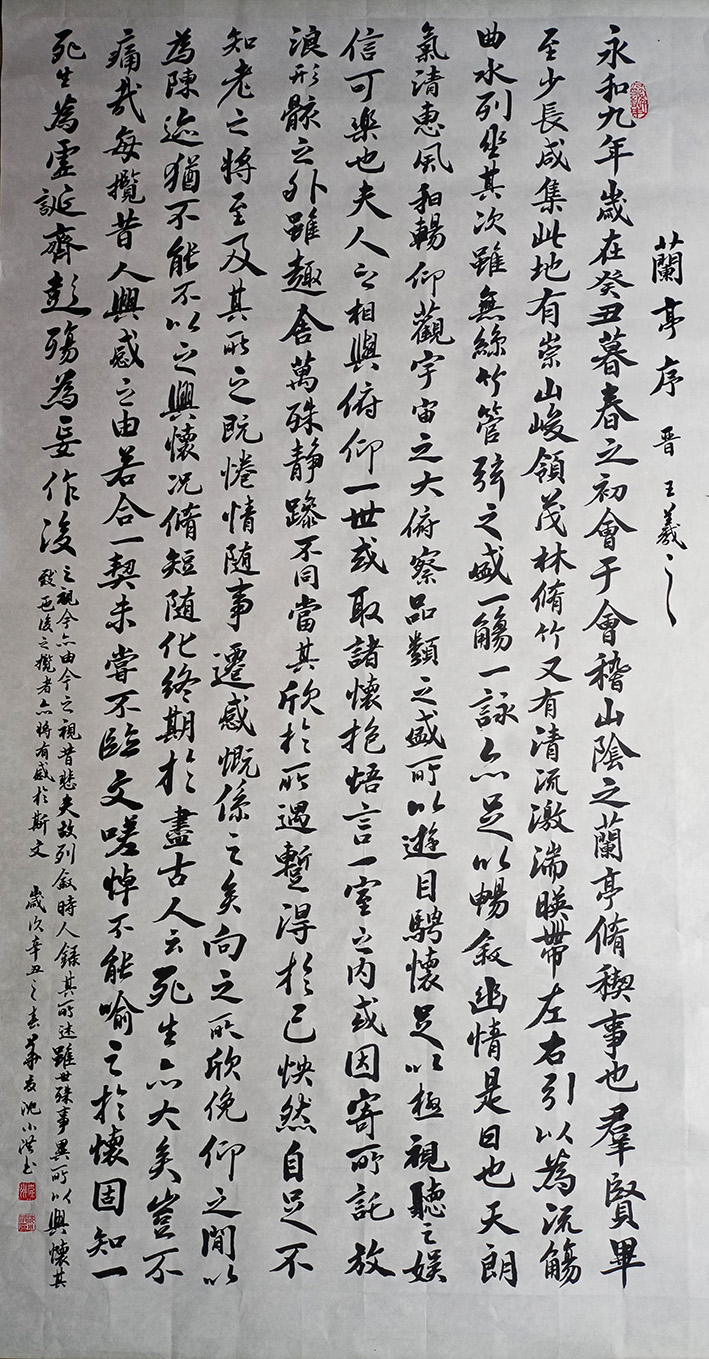 蘭亭序 晋 王羲之
永和九年歲在癸丑暮春之初會于會稽山陰之蘭亭脩禊事也羣賢畢
至少長咸集此地有崇山峻領茂林脩竹又有清流激湍暎帶左右引以為流觴
曲水列坐其次雖無絲竹管弦之盛一觴一詠亦足以暢敘幽情是日也天朗
氣清惠風和暢仰觀宇宙之大俯察品類之盛所以遊目騁懷足以極視聽之娛
信可樂也夫人之相與俯仰一世或取諸懷抱悟言一室之內或因寄所託放
浪形骸之外雖趣舍萬殊靜躁不同當其欣於所遇蹔得於己怏然自足不
知老之將至及其所之既惓情隨事遷感慨係之矣向之所欣俛仰之閒以
為陳迹猶不能不以之興懷况脩短隨化終期於盡古人云死生亦大矣豈不
痛哉每攬昔人興感之由若合一契未嘗不臨文嗟悼不能喻之於懷固知一
死生為虛誕齊彭殤為妄作後
之視今亦由今之視昔悲夫故列敘時人錄其所述雖世殊事異所以興懷其
致一也後之攬者亦將有感於斯文 歲次辛丑之春 沈小洪书